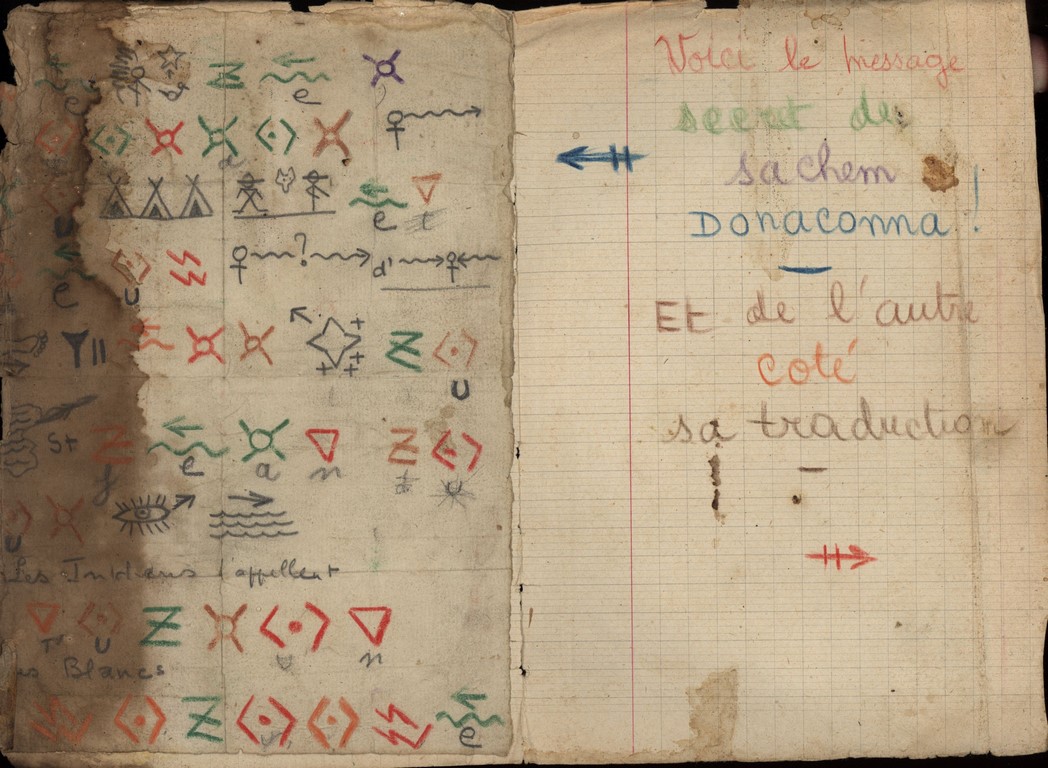 e
e
a
e
u
?
d'
e
u
u
St
e
a
n
f
u
u
Les Indiens l'appellent
u
n
es Blancs
e
Voici le message
secret du
sachem
Donaconna !
Et de l'autre
coté
sa traduction